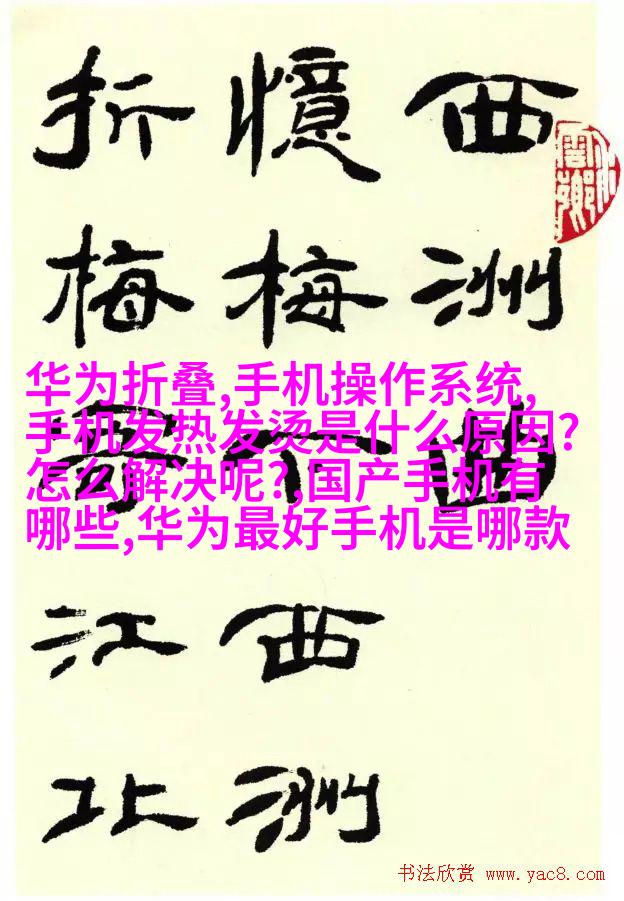 西洲曲
憶梅下西洲
折梅寄江北
华为折叠,手机操作系统,
手机发热发烫是什么原因?
怎么解决呢?,国产手机有
哪些,华为最好手机是哪款
书法欣赏 www.yac8.com